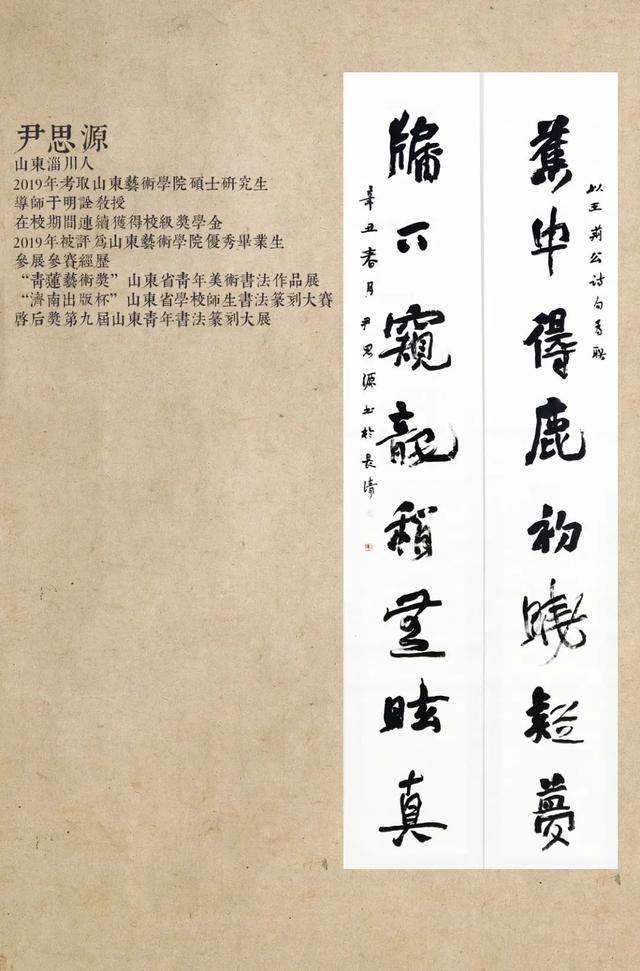 尹思源
山東淄川人
2019年考取山東藝術學院碩士研究生
導師于明詮教授
在校期間連續獲得校級獎學金
2019年被評爲山東藝術學院優秀畢業生
參展參賽經歷
“青蓮藝術獎”山東省青年美術書法作品展
“濟南出版杯”山東省學校師生書法篆刻大賽
啓后獎第九屆山東青年書法篆刻大展
以王荊公詩句為聯
蕉中得鹿初曉疑夢
牖下窺龍稍無眩真
辛丑春月尹思源書於長清